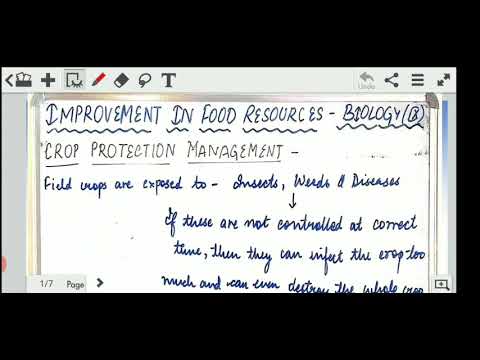 Undo
IMPROVEMENT IN FOOD RESOURCES - BIOLOGY
CROP PROTECTION MANAGEMENT -
Field crops are exposed to - Insects, Weeds & Diseases
↓
If these are not controlled at correct
time, then they can infect the crop too
much and can even destroy the whole crop
1/7 Page